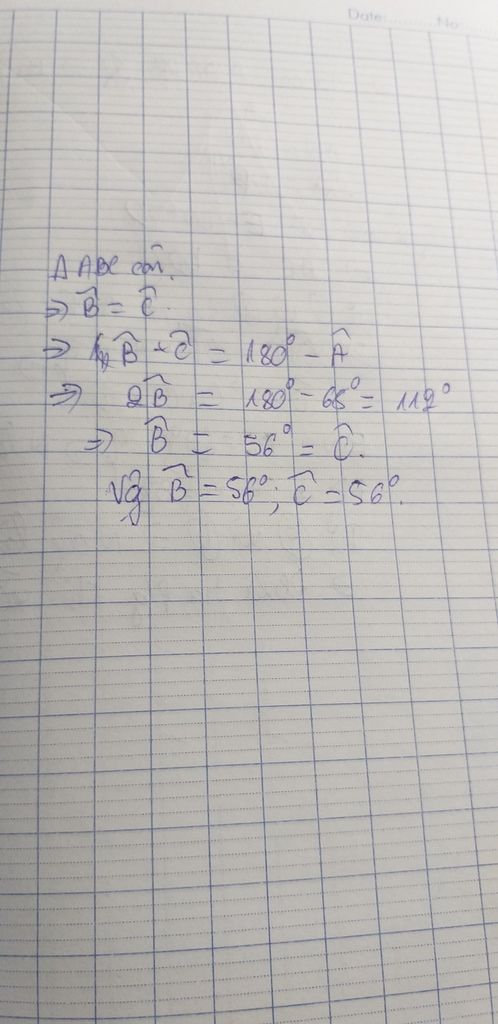 Date: No:
Δ ABC cân.
⇒ B̂ = Ĉ.
⇒ B̂ + Ĉ = 180° - Â
⇒ 2B̂ = 180° - 68° = 112°
⇒ B̂ = 56° = Ĉ.
Vậy B̂ = 56°; Ĉ = 56°.